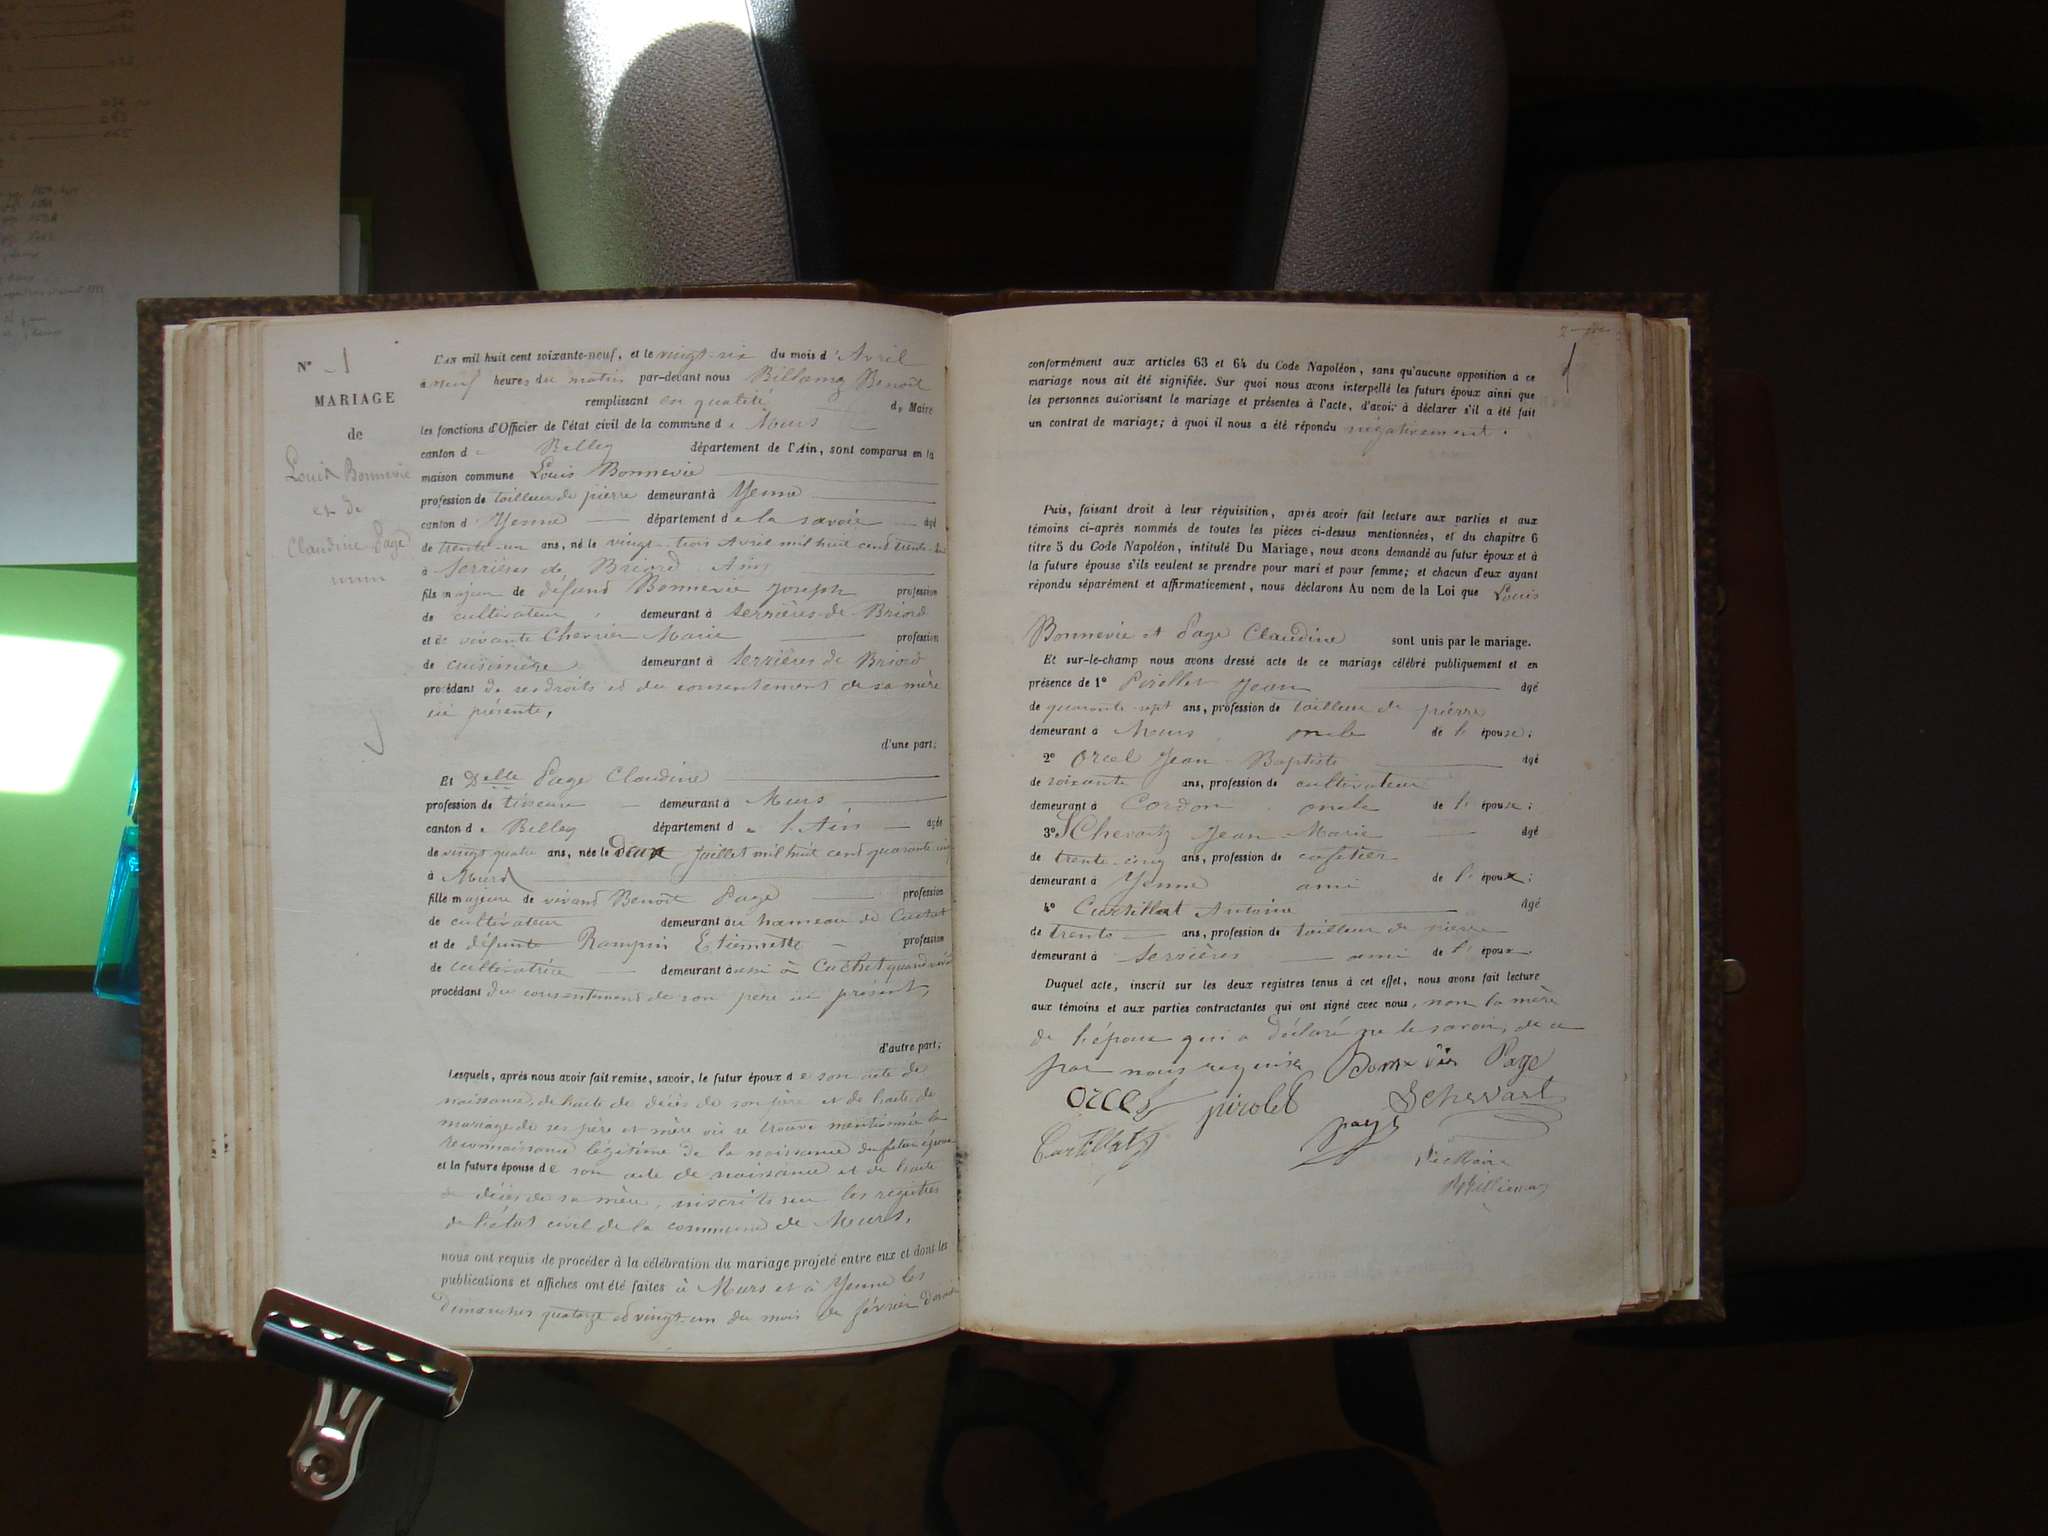 N° 1
MARIAGE
de
Louis Bonnevie
et de
Claudine Page
L'AN mil huit cent soixante-neuf, et le vingt-six du mois d'Avril
à neuf heures du matin par-devant nous Billamaz Benoît
remplissant en qualité de Maire
les fonctions d'Officier de l'état civil de la commune de Murs
canton de Belley département de l'Ain, sont comparus en la
maison commune Louis Bonnevie
profession de tailleur de pierre demeurant à Yenne
canton d'Yenne département de la Savoie âgé
de trente-un ans, né le vingt-trois Avril mil huit cent trente-
à Serrières de Briord Ain
fils majeur de défunt Bonnevie Joseph profession
de cultivateur demeurant à Serrières-de-Briord
et de vivante Chervier Marie profession
de cuisinière demeurant à Serrières de Briord
procédant de ses droits et du consentement de sa mère
ici présente,
d'une part;
Et Delle Page Claudine
profession de tisseuse demeurant à Murs
canton de Belley département de l'Ain âgée
de vingt quatre ans, née le Deux Juillet mil huit cent quarante
à Murs
fille majeure de vivant Benoît Page profession
de cultivateur demeurant au hameau de Cuchet
et de défunte Rampin Etiennette profession
de cultivatrice demeurant aussi à Cuchet quand
procédant du consentement de son père ici présent,
d'autre part;
Lesquels, après nous avoir fait remise, savoir, le futur époux de son acte de
naissance, de l'acte de décès de son père et de l'acte de
mariage de ses père et mère où se trouve mentionnée la
reconnaissance légitime de la naissance du futur époux
et la future épouse de son acte de naissance et de l'acte
de décès de sa mère, inscrits sur les registres
de l'état civil de la commune de Murs,
nous ont requis de procéder à la célébration du mariage projeté entre eux et dont les
publications et affiches ont été faites à Murs et à Yenne les
dimanches quatorze et vingt-un du mois de février dernier
conformément aux articles 63 et 64 du Code Napoléon, sans qu'aucune opposition à ce
mariage nous ait été signifiée. Sur quoi nous avons interpellé les futurs époux ainsi que
les personnes autorisant le mariage et présentes à l'acte, d'avoir à déclarer s'il a été fait
un contrat de mariage; à quoi il nous a été répondu négativement.
Puis, faisant droit à leur réquisition, après avoir fait lecture aux parties et aux
témoins ci-après nommés de toutes les pièces ci-dessus mentionnées, et du chapitre 6
titre 5 du Code Napoléon, intitulé Du Mariage, nous avons demandé au futur époux et à
la future épouse s'ils veulent se prendre pour mari et pour femme; et chacun d'eux ayant
répondu séparément et affirmativement, nous déclarons Au nom de la Loi que Louis
Bonnevie et Page Claudine sont unis par le mariage.
Et sur-le-champ nous avons dressé acte de ce mariage célébré publiquement et en
présence de 1° Pirollet Jean âgé
de quarante-sept ans, profession de tailleur de pierre
demeurant à Murs oncle de l'épouse;
2° Orcel Jean-Baptiste âgé
de soixante ans, profession de cultivateur
demeurant à Cordon oncle de l'épouse;
3° Schevartz Jean-Marie âgé
de trente-cinq ans, profession de cafetier
demeurant à Yenne ami de l'époux;
4° Curtillat Antoine âgé
de trente ans, profession de tailleur de pierre
demeurant à Serrières ami de l'époux
Duquel acte, inscrit sur les deux registres tenus à cet effet, nous avons fait lecture
aux témoins et aux parties contractantes qui ont signé avec nous, non la mère
de l'époux qui a déclaré ne le savoir, de ce
par nous requise Bonnevie Page
Orcel pirolet Schevart
Curtillat page
Le Maire